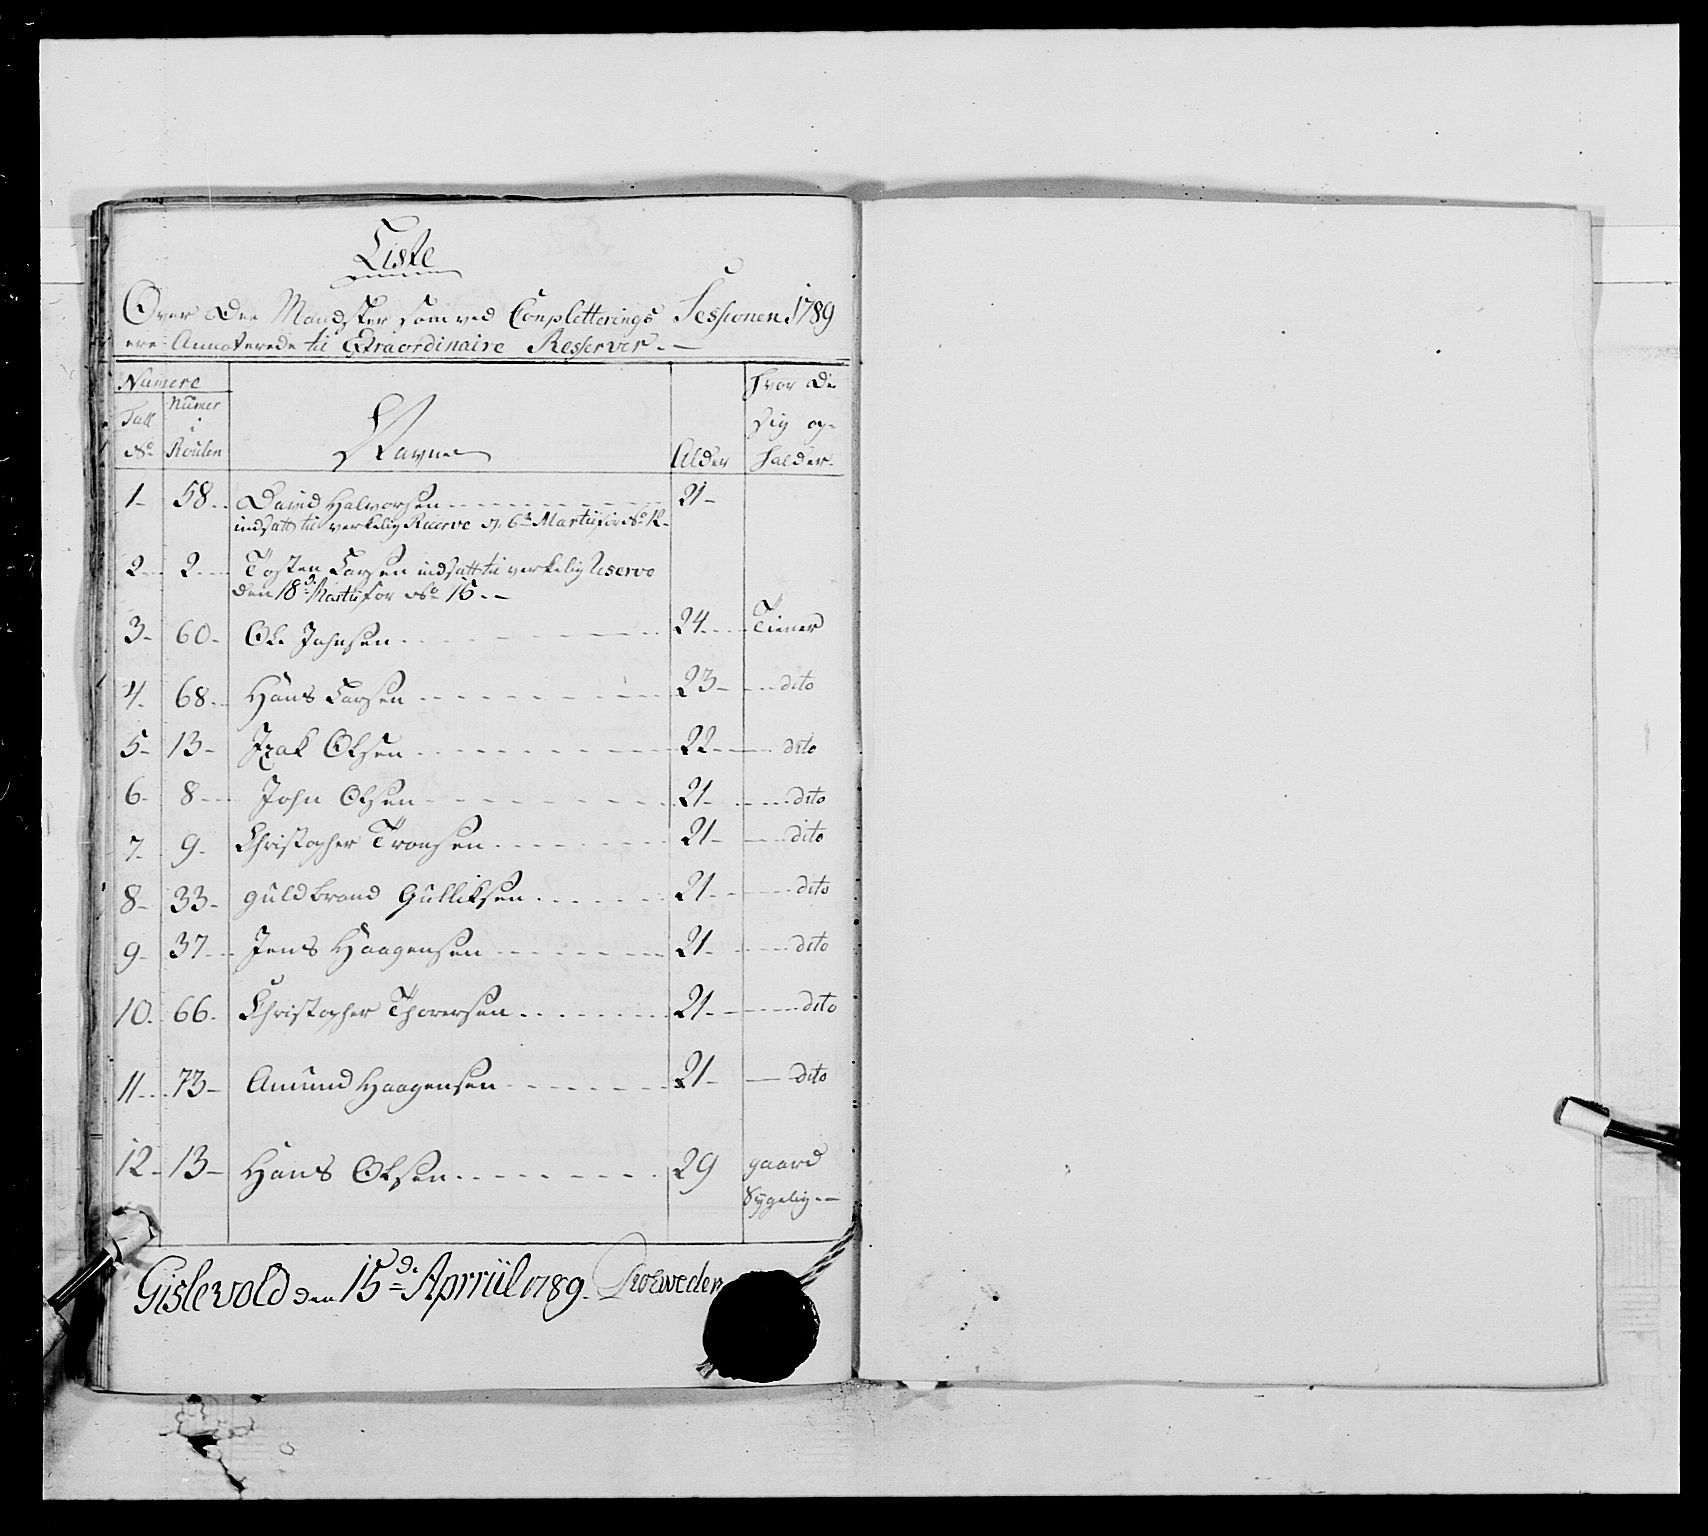 Liste
Over Dee Mandsker som ved Conpletterings Sessionen 1789
ere Annoterede til Extraordinaire Resserver.
Numere
Tall No
Numer i Roulen
Navne
Alder
Hvor De sig op-holder.
1 58 David Halvorsen 21
indsatt til verkelig Reserve d. 6te Martii for No 12
2 2 Tosten Larsen indsatt til verkelig Reserve
den 18d Martii for No 15.
3 60 Ole Johnsen 24 Tiener
4 68 Hans Larsen 23 dito
5 13 Izak Olsen 22 dito
6 8 John Olsen 21 dito
7 9 Christopher Tronsen 21 dito
8 33 Guldbrand Gulliksen 21 dito
9 37 Jens Haagensen 21 dito
10 66 Christopher Thorersen 21 dito
11 73 Amund Haagensen 21 dito
12 13 Hans Olsen 29 gaard
Sygelig
Gislevold den 15de Apriil 1789.